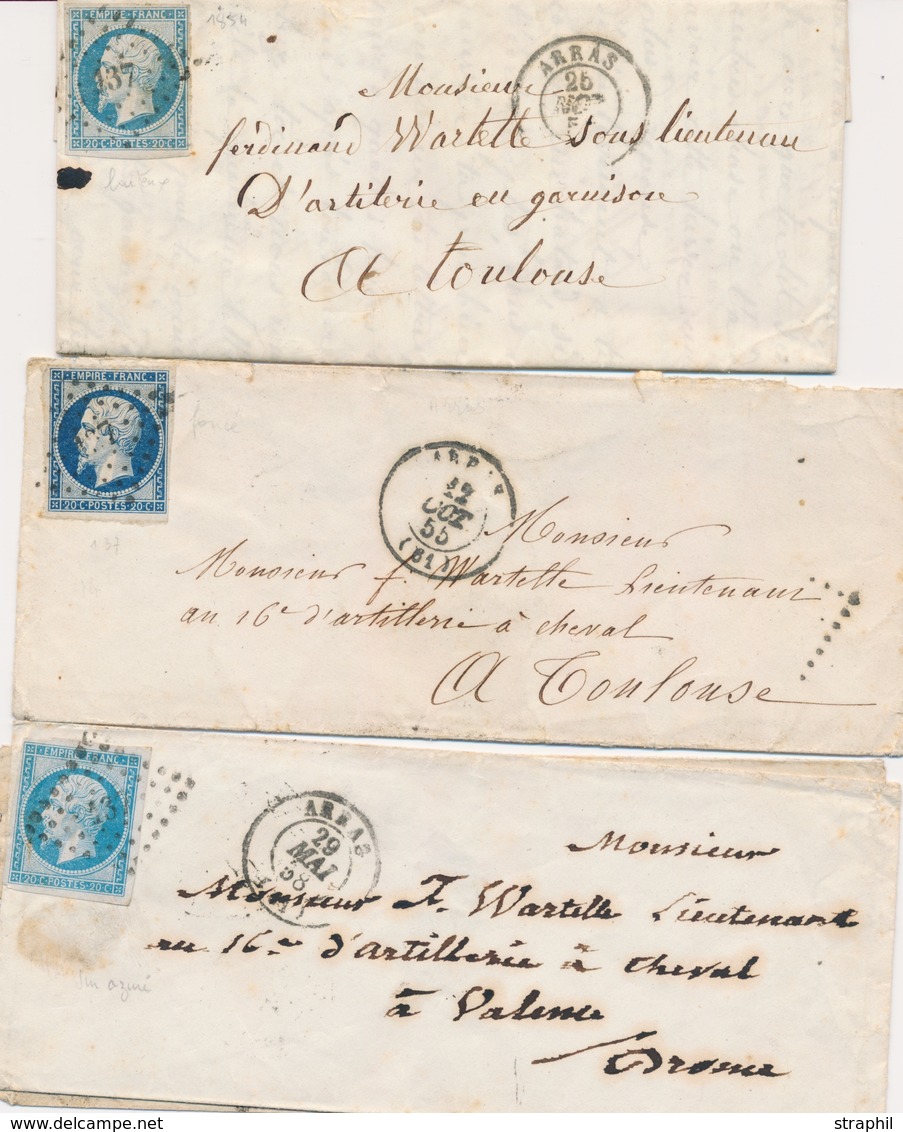 1854
EMPIRE·FRANC·
137
20·C·POSTES·20·C·
ARRAS
25
Monsieur
ferdinand Wartelle sous lieutenan
D'artilerie en garnison
A toulouse
EMPIRE·FRANC·
137
20·C·POSTES·20·C·
foncé
137
ARRAS
12
OCT
55
(61)
Monsieur
Monsieur f. Wartelle Lieutenant
au 16e d'artillerie à cheval
A Toulouse
EMPIRE·FRANC·
20·C·POSTES·20·C·
ARRAS
29
MAI
58
Monsieur
Monsieur F. Wartelle Lieutenant
au 16me d'artillerie à cheval
à Valence
Drome
sur azuré
straphil